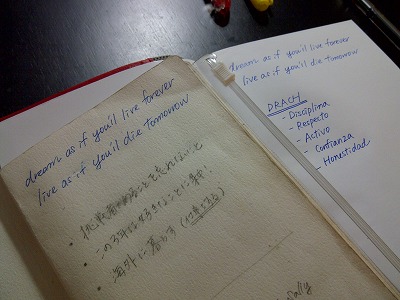 dream as if you'll live forever
live as if you'll die tomorrow
・挑戦者であることを忘れないこと
・この3年は好きなことに集中!
・海外に暮らす(仕事する)
dream as if you'll live forever
live as if you'll die tomorrow
DRACH
- Disciplina
- Respeto
- Activo
- Confianza
- Honestidad